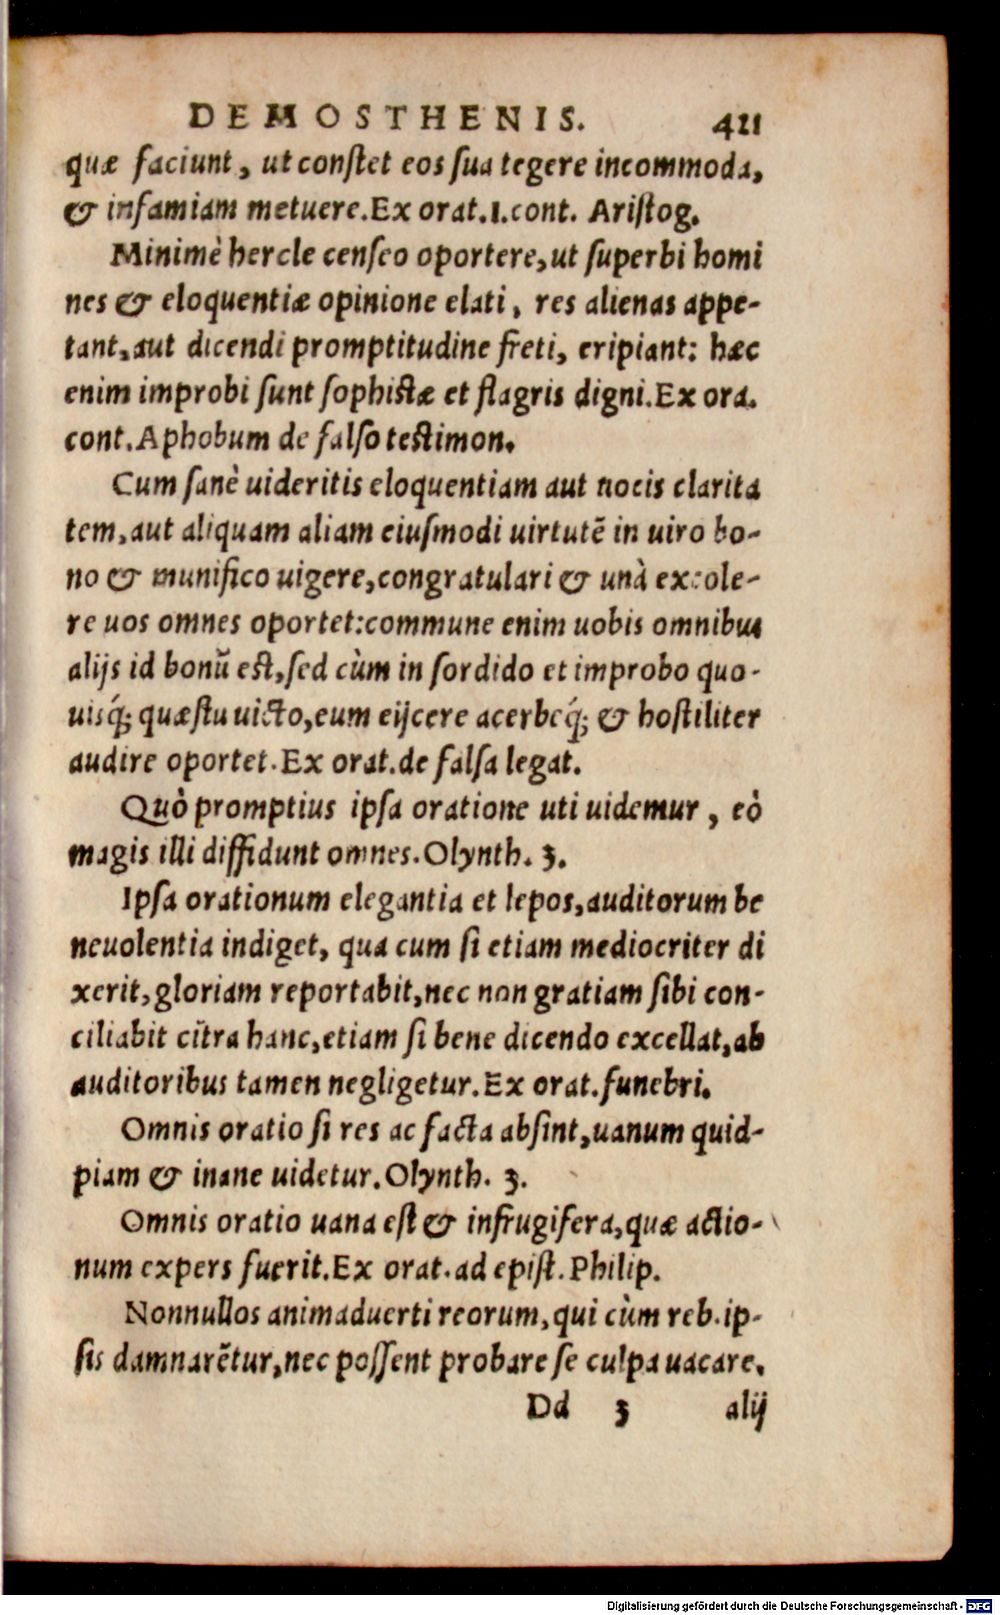 DEMOSTHENIS. 421
quæ faciunt, ut conſtet eos ſua tegere incommoda,
& infamiam metuere. Ex orat. 1. cont. Ariſtog.
Minimè hercle cenſeo oportere, ut ſuperbi homi
nes & eloquentiæ opinione elati, res alienas appe-
tant, aut dicendi promptitudine freti, eripiant: hæc
enim improbi ſunt ſophiſtæ et flagris digni. Ex ora.
cont. Aphobum de falſo teſtimon.
Cum ſanè uideritis eloquentiam aut uocis clarita
tem, aut aliquam aliam eiuſmodi uirtutē in uiro bo-
no & munifico uigere, congratulari & unà excole-
re uos omnes oportet: commune enim uobis omnibus
alijs id bonū eſt, ſed cùm in ſordido et improbo quo-
uisq́; quæſtu uicto, eum eijcere acerbeq́; & hoſtiliter
audire oportet. Ex orat. de falſa legat.
Quò promptius ipſa oratione uti uidemur, eò
magis illi diffidunt omnes. Olynth. 3.
Ipſa orationum elegantia et lepos, auditorum be
neuolentia indiget, qua cum ſi etiam mediocriter di
xerit, gloriam reportabit, nec non gratiam ſibi con-
ciliabit citra hanc, etiam ſi bene dicendo excellat, ab
auditoribus tamen negligetur. Ex orat. funebri.
Omnis oratio ſi res ac facta abſint, uanum quid-
piam & inane uidetur. Olynth. 3.
Omnis oratio uana eſt & infrugifera, quæ actio-
num expers fuerit. Ex orat. ad epiſt. Philip.
Nonnullos animaduerti reorum, qui cùm reb. ip-
ſis damnarētur, nec poſſent probare ſe culpa uacare,
Dd 3 alij
Digitalisierung gefördert durch die Deutsche Forschungsgemeinschaft - DFG